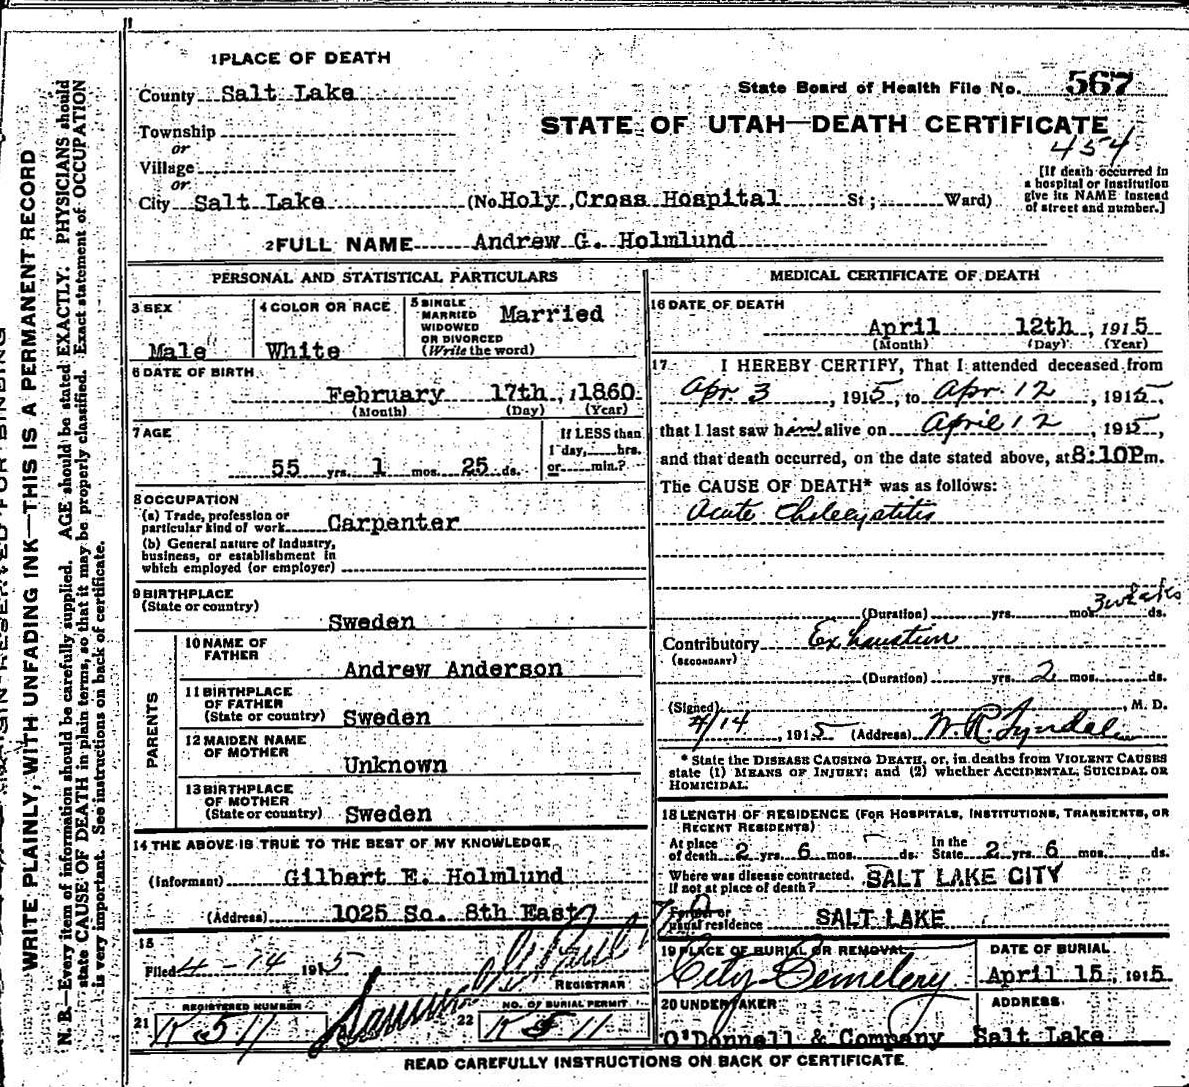 1 PLACE OF DEATH
County Salt Lake
State Board of Health File No. 567
Township
or
Village
or
STATE OF UTAH—DEATH CERTIFICATE
454
[If death occurred in
a hospital or institution
give its NAME instead
of street and number.]
City Salt Lake (No. Holy Cross Hospital St; Ward)
2 FULL NAME Andrew G. Holmlund
PERSONAL AND STATISTICAL PARTICULARS
3 SEX
Male
4 COLOR OR RACE
White
5 SINGLE
MARRIED
WIDOWED
OR DIVORCED
(Write the word)
Married
6 DATE OF BIRTH
February 17th, 1860
(Month) (Day) (Year)
7 AGE
55 yrs. 1 mos. 25 ds.
If LESS than
1 day, hrs.
or min.?
8 OCCUPATION
(a) Trade, profession or
particular kind of work Carpenter
(b) General nature of industry,
business, or establishment in
which employed (or employer)
9 BIRTHPLACE
(State or country)
Sweden
PARENTS
10 NAME OF
FATHER
Andrew Anderson
11 BIRTHPLACE
OF FATHER
(State or country) Sweden
12 MAIDEN NAME
OF MOTHER
Unknown
13 BIRTHPLACE
OF MOTHER
(State or country) Sweden
14 THE ABOVE IS TRUE TO THE BEST OF MY KNOWLEDGE
(Informant) Gilbert E. Holmlund
(Address) 1025 So. 8th East
15
Filed 4-14 1915
REGISTRAR
REGISTERED NUMBER
21 K 511
NO. OF BURIAL PERMIT
22 K 511
MEDICAL CERTIFICATE OF DEATH
16 DATE OF DEATH
April 12th, 1915
(Month) (Day) (Year)
17 I HEREBY CERTIFY, That I attended deceased from
Apr. 3, 1915, to Apr. 12, 1915,
that I last saw him alive on April 12, 1915,
and that death occurred, on the date stated above, at 8:10P m.
The CAUSE OF DEATH* was as follows:
Acute Cholecystitis
(Duration) yrs. mos. 3 weeks ds.
Contributory Exhaustion
(SECONDARY)
(Duration) yrs. 2 mos. ds.
(Signed) M. D.
4/14, 1915 (Address) W. R. Tyndale
* State the DISEASE CAUSING DEATH, or, in deaths from VIOLENT CAUSES
state (1) MEANS OF INJURY; and (2) whether ACCIDENTAL, SUICIDAL OR
HOMICIDAL.
18 LENGTH OF RESIDENCE (FOR HOSPITALS, INSTITUTIONS, TRANSIENTS, OR
RECENT RESIDENTS)
At place
of death 2 yrs. 6 mos. ds.
In the
State 2 yrs. 6 mos. ds.
Where was disease contracted,
if not at place of death? SALT LAKE CITY
Former or
usual residence SALT LAKE
19 PLACE OF BURIAL OR REMOVAL
City Cemetery
DATE OF BURIAL
April 15, 1915
20 UNDERTAKER
O'Donnell & Company
ADDRESS
Salt Lake
READ CAREFULLY INSTRUCTIONS ON BACK OF CERTIFICATE
WRITE PLAINLY, WITH UNFADING INK—THIS IS A PERMANENT RECORD
N. B.—Every item of information should be carefully supplied. AGE should be stated EXACTLY. PHYSICIANS should
state CAUSE OF DEATH in plain terms, so that it may be properly classified. Exact statement of OCCUPATION
is very important. See instructions on back of certificate.